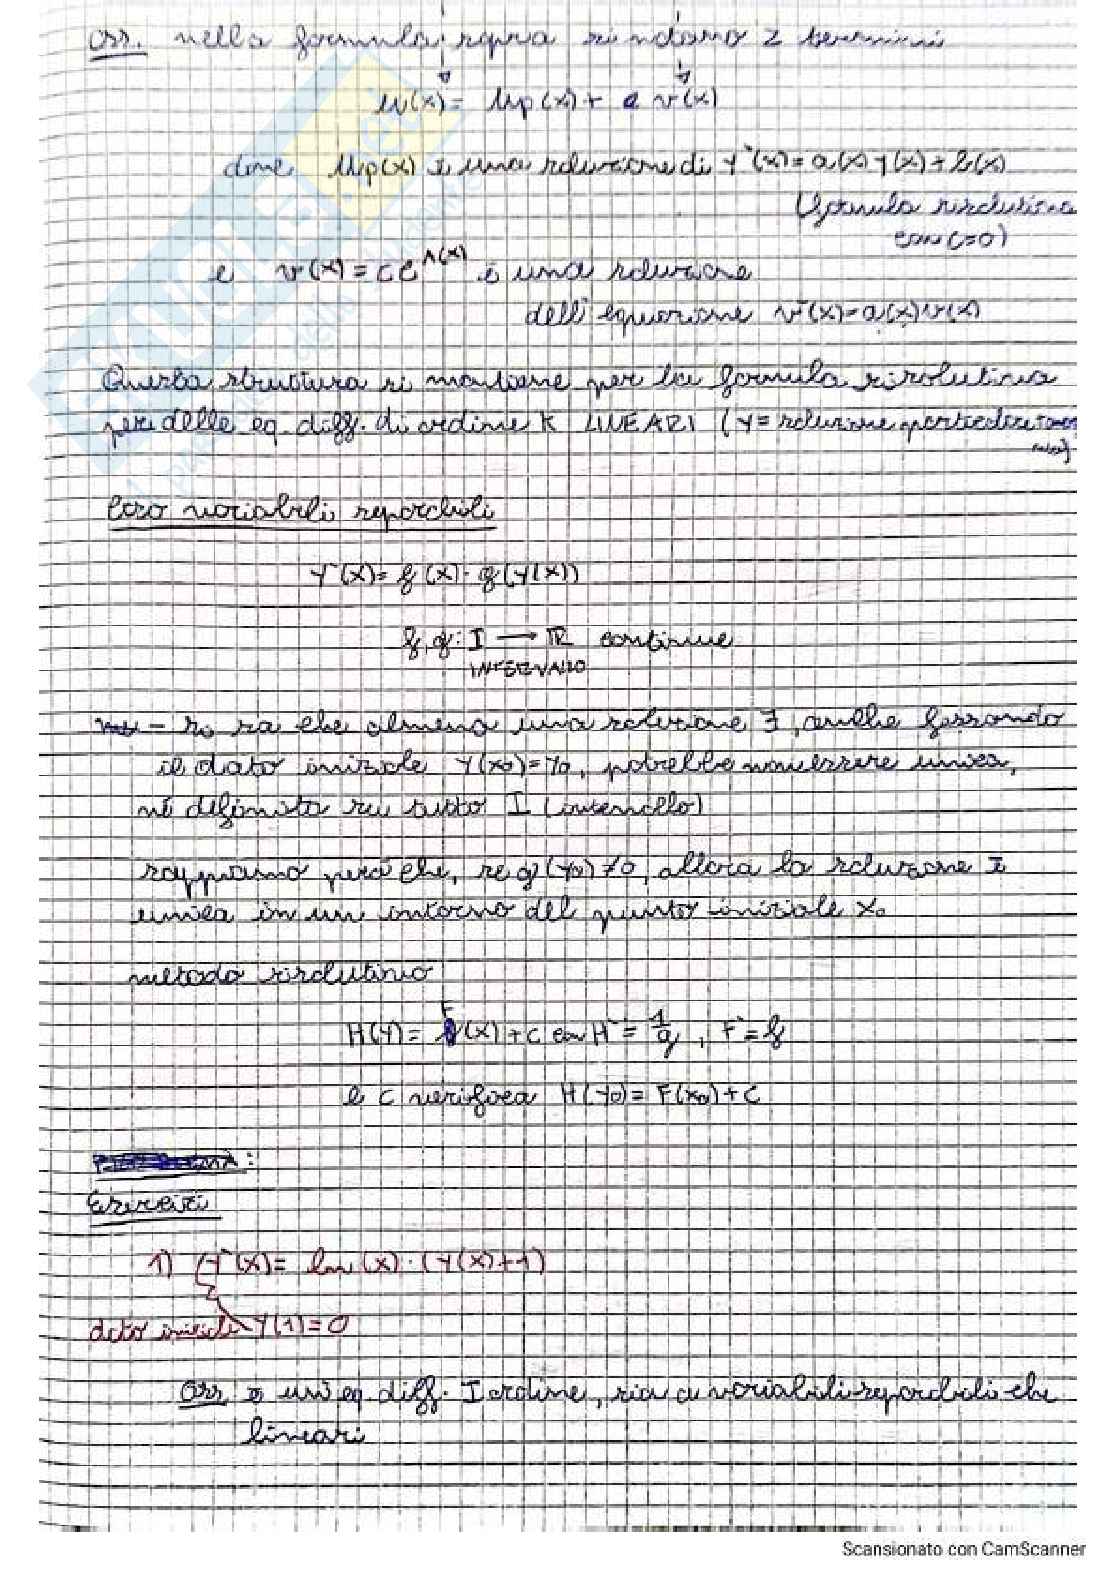 Oss. nella formula sopra si notano 2 termini
u(x) = up(x) + v(x)
dove up(x) è una soluzione di y'(x)=a(x)y(x)+b(x)
(formula risolutiva
con c=0)
e v(x) = c e^A(x) è una soluzione
dell'equazione v'(x)=a(x)v(x)
Questa struttura si mantiene per la formula risolutiva
per delle eq. diff. di ordine k LINEARI (y= soluzione particolare
Caso variabili separabili
y'(x)= f(x)·g(y(x))
f,g: I → ℝ continue
INTERVALLO
- si sa che almeno una soluzione ∃, anche fissando
il dato iniziale y(x0)=y0, potrebbe non essere unica,
né definita su tutto I (intervallo)
sappiamo però che, se g(y0)≠0, allora la soluzione è
unica in un intorno del punto iniziale x0
metodo risolutivo
H(y)= F(x)+c con H'= 1/g, F'=f
e c verifica H(y0)= F(x0)+c
Esercizi
1) y'(x)= ln(x)·(y(x)+1)
dato iniziale y(1)=0
Oss è un'eq. diff. I ordine, sia a variabili separabili che
lineari
Scansionato con CamScanner